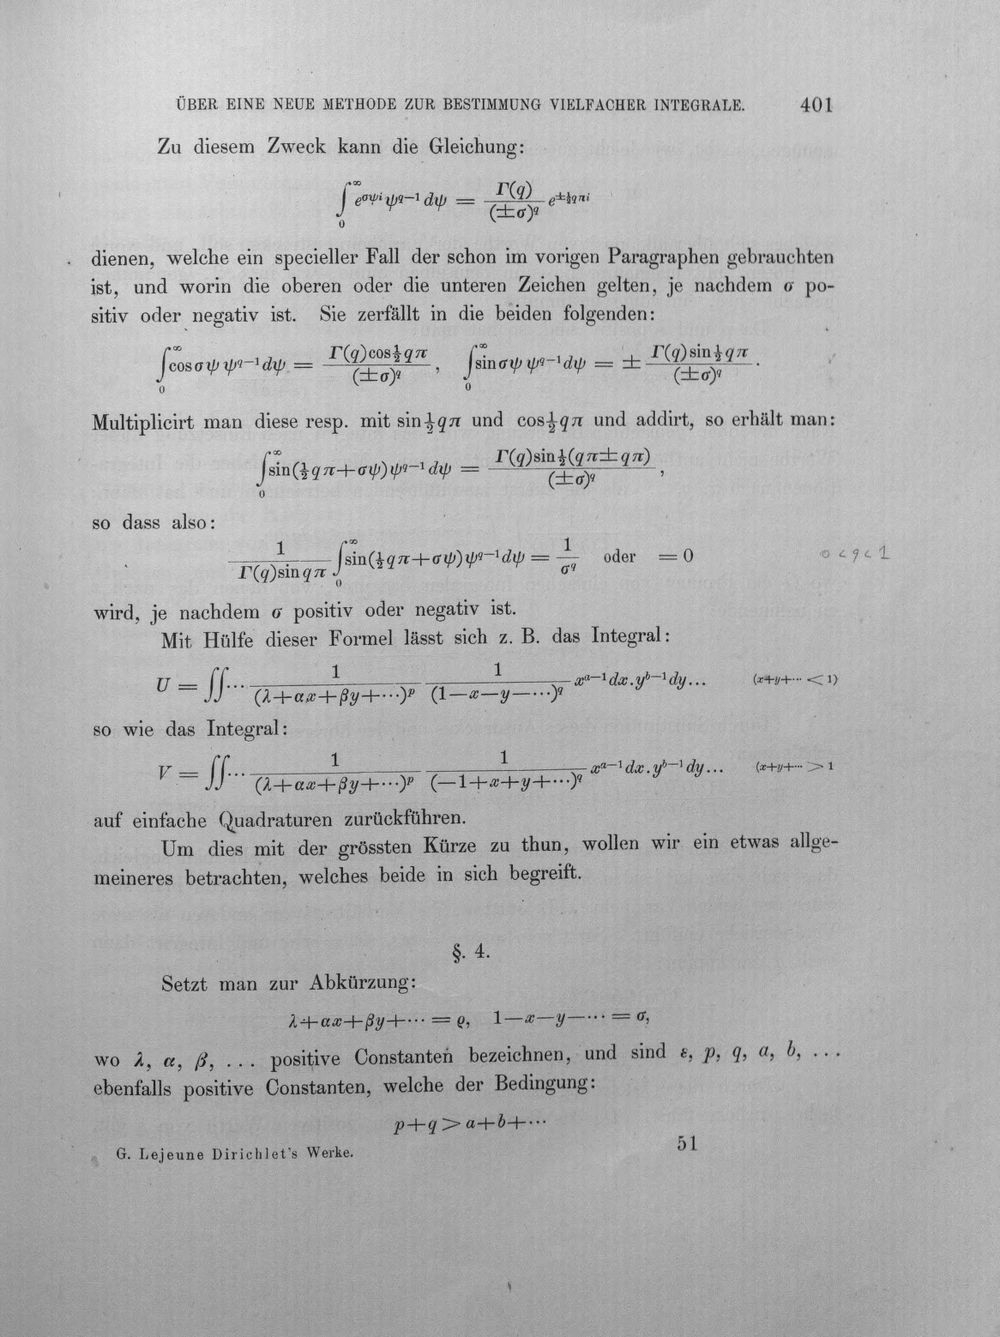 ÜBER EINE NEUE METHODE ZUR BESTIMMUNG VIELFACHER INTEGRALE. 401
Zu diesem Zweck kann die Gleichung:
∫₀^∞ e^{σψi} ψ^{q−1} dψ = Γ(q)/(±σ)^q e^{±½qπi}
dienen, welche ein specieller Fall der schon im vorigen Paragraphen gebrauchten
ist, und worin die oberen oder die unteren Zeichen gelten, je nachdem σ po-
sitiv oder negativ ist. Sie zerfällt in die beiden folgenden:
∫₀^∞ cos σψ ψ^{q−1} dψ = Γ(q)cos½qπ/(±σ)^q, ∫₀^∞ sin σψ ψ^{q−1} dψ = ± Γ(q)sin½qπ/(±σ)^q.
Multiplicirt man diese resp. mit sin½qπ und cos½qπ und addirt, so erhält man:
∫₀^∞ sin(½qπ+σψ)ψ^{q−1} dψ = Γ(q)sin½(qπ±qπ)/(±σ)^q,
so dass also:
1/(Γ(q)sin qπ) ∫₀^∞ sin(½qπ+σψ)ψ^{q−1} dψ = 1/σ^q oder = 0 0<q<1
wird, je nachdem σ positiv oder negativ ist.
Mit Hülfe dieser Formel lässt sich z. B. das Integral:
U = ∬··· 1/(λ+αx+βy+···)^p 1/(1—x—y—···)^q x^{a−1}dx.y^{b−1}dy... (x+y+··· < 1)
so wie das Integral:
V = ∬··· 1/(λ+αx+βy+···)^p 1/(—1+x+y+···)^q x^{a−1}dx.y^{b−1}dy... (x+y+··· > 1
auf einfache Quadraturen zurückführen.
Um dies mit der grössten Kürze zu thun, wollen wir ein etwas allge-
meineres betrachten, welches beide in sich begreift.
§. 4.
Setzt man zur Abkürzung:
λ+αx+βy+··· = ϱ, 1—x—y—··· = σ,
wo λ, α, β, ... positive Constanten bezeichnen, und sind ε, p, q, a, b, ...
ebenfalls positive Constanten, welche der Bedingung:
p+q > a+b+···
G. Lejeune Dirichlet's Werke. 51